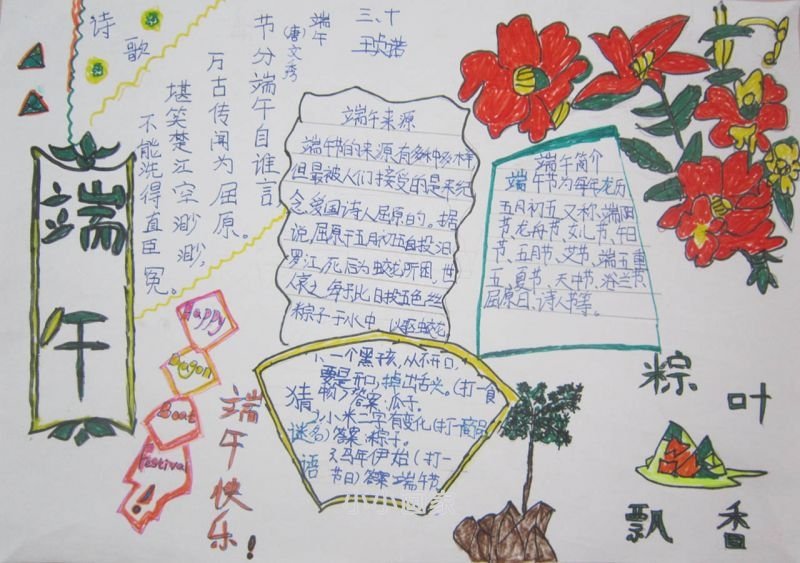 诗歌
端午
(唐)文秀
节分端午自谁言
万古传闻为屈原。
堪笑楚江空渺渺,
不能洗得直臣冤。
三、十
端午
端午来源
端午节的来源有多种多样
但最被人们接受的是来纪
念爱国诗人屈原的。据
说屈原于五月初五自投汨
罗江,死后为蛟龙所困,世
人哀之,每于此日投五色丝
粽子于水中,以驱蛟龙
端午简介
端午节为每年农历
五月初五又称,端阳
节、龙舟节、女儿节、午日
节、五月节、艾节、端五重
五、夏节、天中节、浴兰节
屈原日、诗人节等。
Happy
Dragon
Boat
Festival
!
端午快乐!
猜谜语
1、一个黑孩,从不开口,
要是开口,掉出舌头。(打一食
物)答案:瓜子。
2、小米二字有变化(打一商品
名)答案:粽子。
3、马年伊始(打一
节日)答案:端午节
粽叶
飘香
小小画家